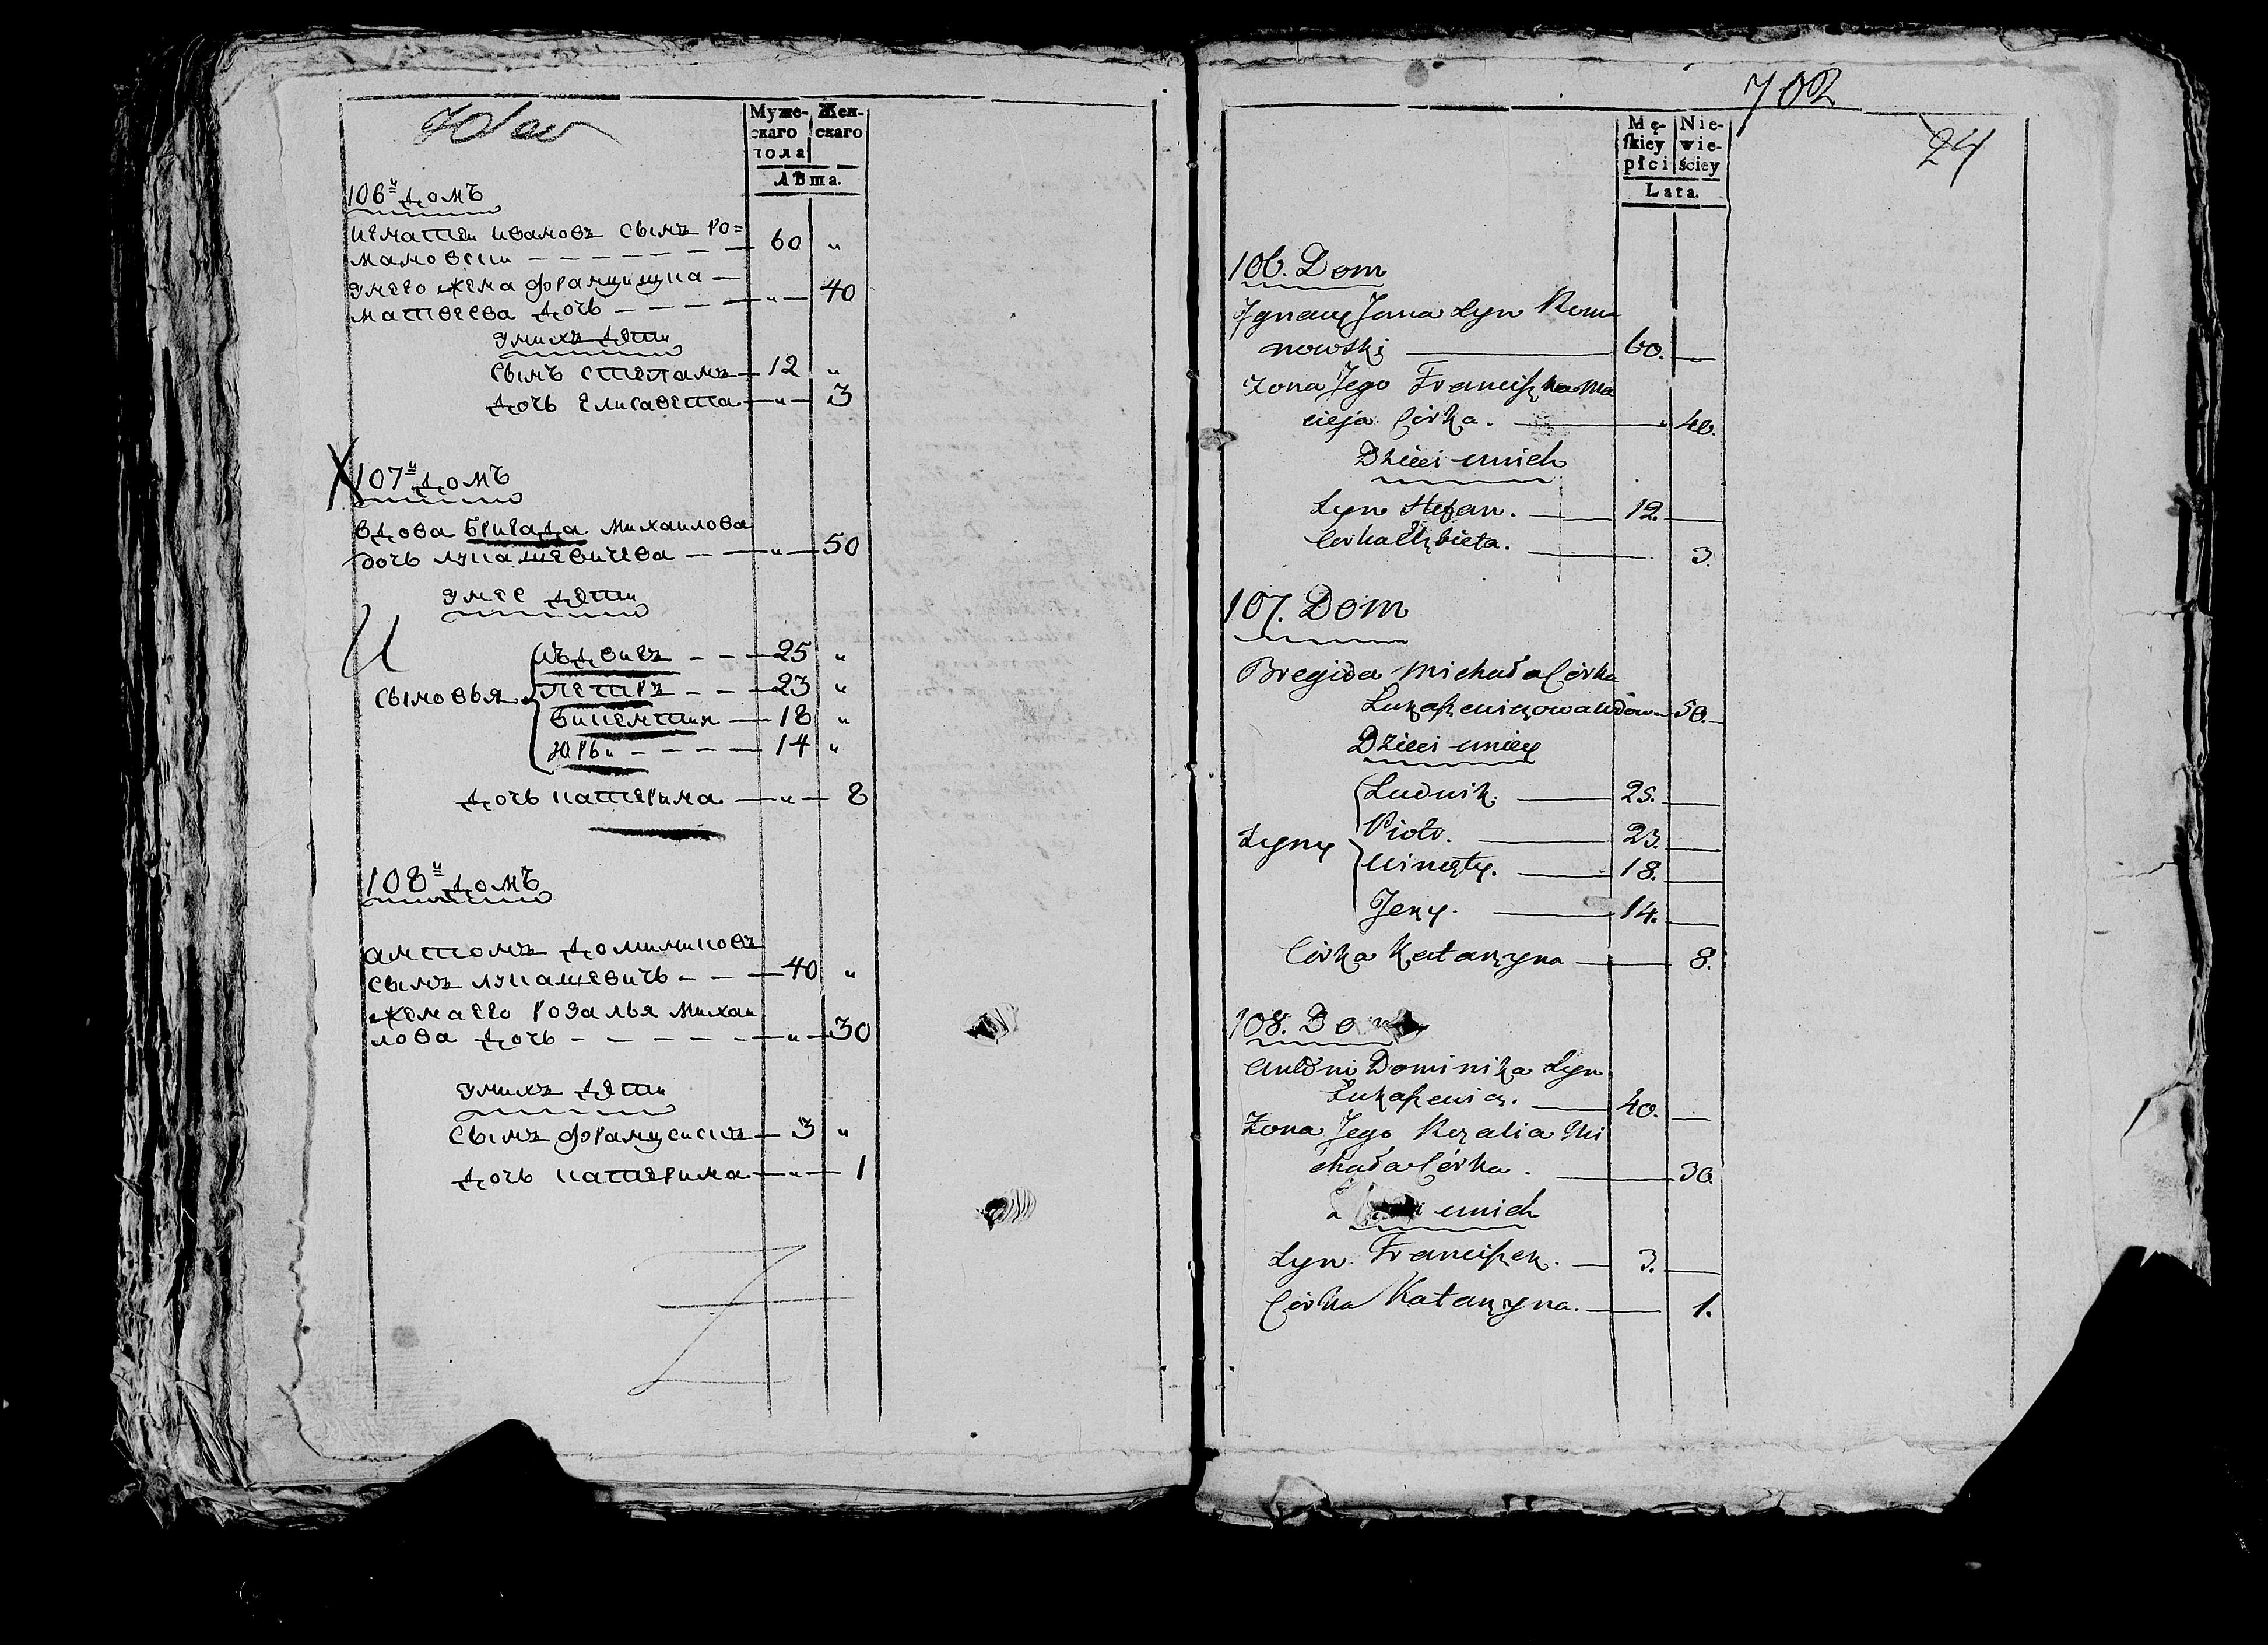 Муже- Жен-
скаго скаго
пола
Лѣта.
106й домъ
игнатей ивановъ сынъ ро=
мановски 60 "
унего жена францишка
матвеева дочь " 40
унихъ дѣти
сынъ степанъ 12 "
дочь елисавета " 3
107й домъ
вдова бригада михаилова
дочь лукашевичева " 50
унее дѣти
людвигъ 25 "
сыновья петръ 23 "
викентия 18 "
юрьи 14 "
дочь катерина " 8
108й домъ
антонъ доминиковъ
сынъ лукашевичь 40 "
жена его розалья михаи
лова дочь " 30
унихъ дѣти
сынъ францискъ 3 "
дочь катерина " 1
702
24
Mę- Nie-
ſkiey wie-
płci ściey
Lata.
106. Dom
Ignacy Jana Syn Roma
nowski 60.
Zona Jego Franciszka Ma
cieja Córka. 40.
Dzieci unich
Syn Stefan. 12.
Corka Elzbieta. 3.
107. Dom
Bregida Michała Córka
Łukaszewiczowa Wdowa 50.
Dzieci uniey
Ludwik. 25.
Syny Piotr. 23.
Wincęty. 18.
Jerzy. 14.
Córka Katarzyna 8.
108. Dom
Antoni Dominika Syn
Łukaszewicz. 40.
Zona Jego Rozalia Mi
chała Córka. 30.
unich
Syn Franciszek. 3.
Córka Katarzyna. 1.